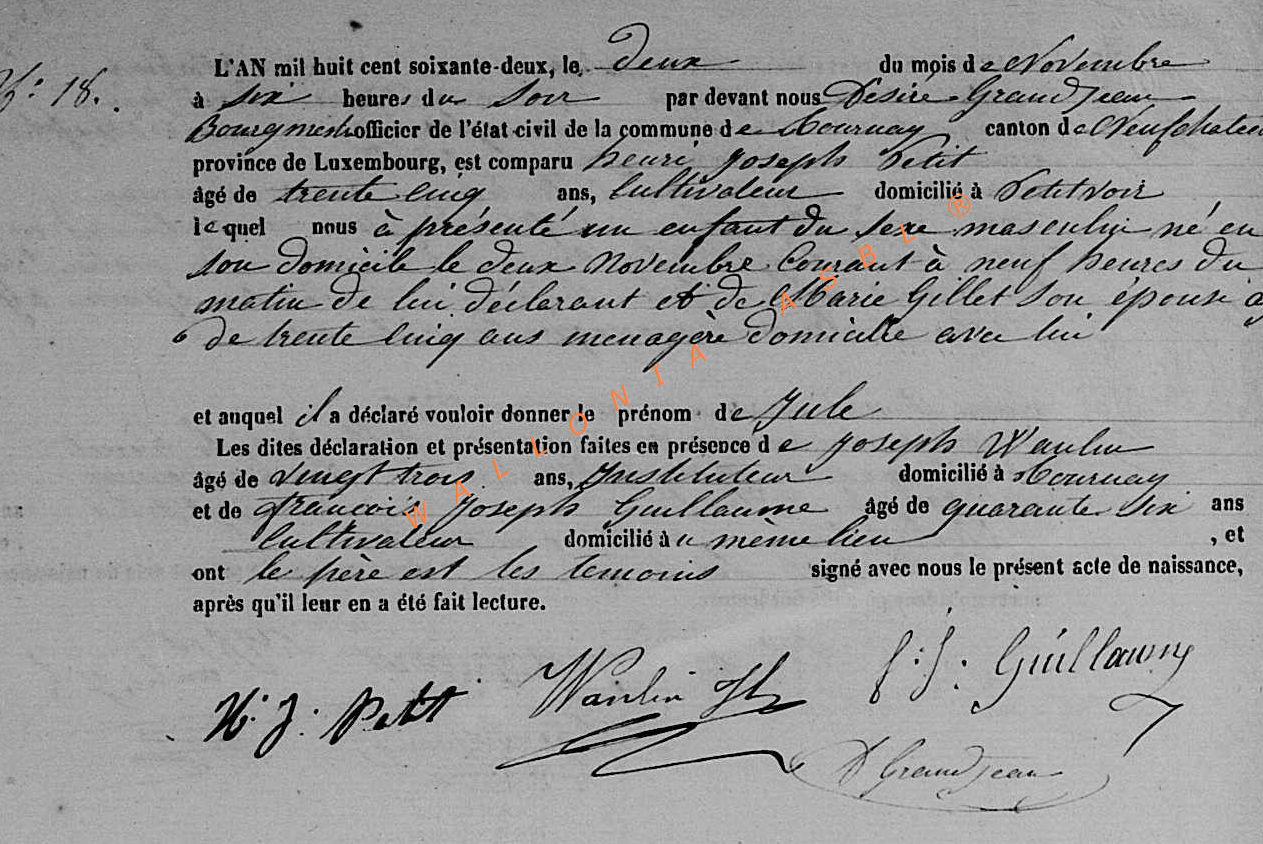 N.° 18.
L'AN mil huit cent soixante-deux, le deux du mois de Novembre
à six heures du Soir par devant nous Desiré Grandjean
Bourgmestre officier de l'état civil de la commune de Tournay canton de Neufchateau
province de Luxembourg, est comparu henri joseph Petit
âgé de trente cinq ans, Cultivateur domicilié à Petitvoir
lequel nous à présenté un enfant du sexe masculin né en
son domicile le deux Novembre Courant à neuf heures du
matin de lui déclarant et de Marie Gillet son épouse ag
é de trente cinq ans menagère domicilié avec lui
et auquel il a déclaré vouloir donner le prénom de Jule
Les dites déclaration et présentation faites en présence de joseph Wanlin
âgé de vingt trois ans, Instituteur domicilié à Tournay
et de francois Joseph Guillaume âgé de quarante six ans
Cultivateur domicilié à même lieu , et
ont le père est les temoins signé avec nous le présent acte de naissance,
après qu'il leur en a été fait lecture.
H. J. Petit Wanlin Jh f. J. Guillaume
D Grandjean
WALLONIA ASBL ®